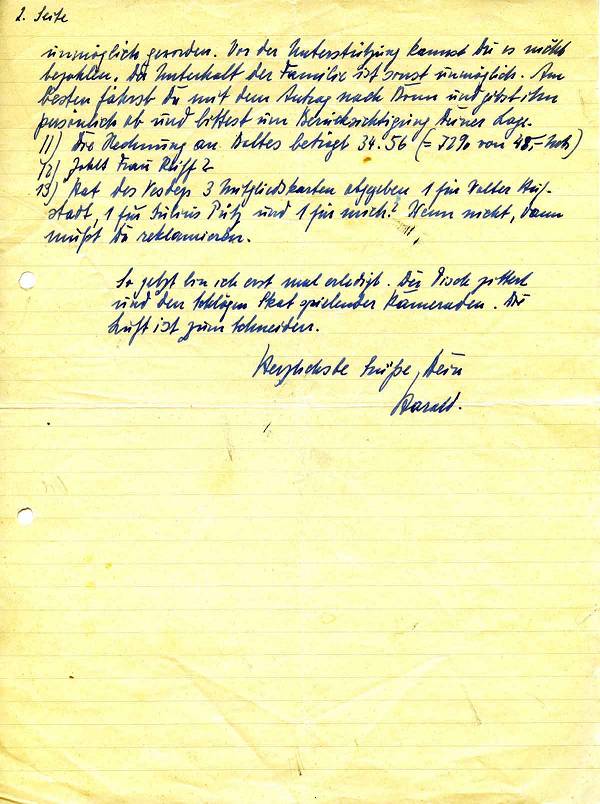 2. Seite
unmöglich geworden. Von der Unterstützung kannst Du es nicht
bezahlen. Der Unterhalt der Familie ist sonst unmöglich. Am
besten fährst Du mit dem Antrag nach Bonn und gibst ihn
persönlich ab und bittest um Berücksichtigung Deiner Lage.
11) Die Rechnung an Baltes beträgt 34.56 (= 72% von 48,-
12) Zahlt Frau Reiff?
13) Hat der 3 Mitgliedskarten abgegeben 1 für Walter
stadt, 1 für Julius Pütz und 1 für mich? Wenn nicht, dann
mußt Du reklamieren.
So jetzt bin ich erst mal erledigt. Der Tisch zittert
unter den Schlägen Skat spielender Kameraden. Die
Luft ist zum Schneiden.
Herzlichste Grüße, Dein
Harald.